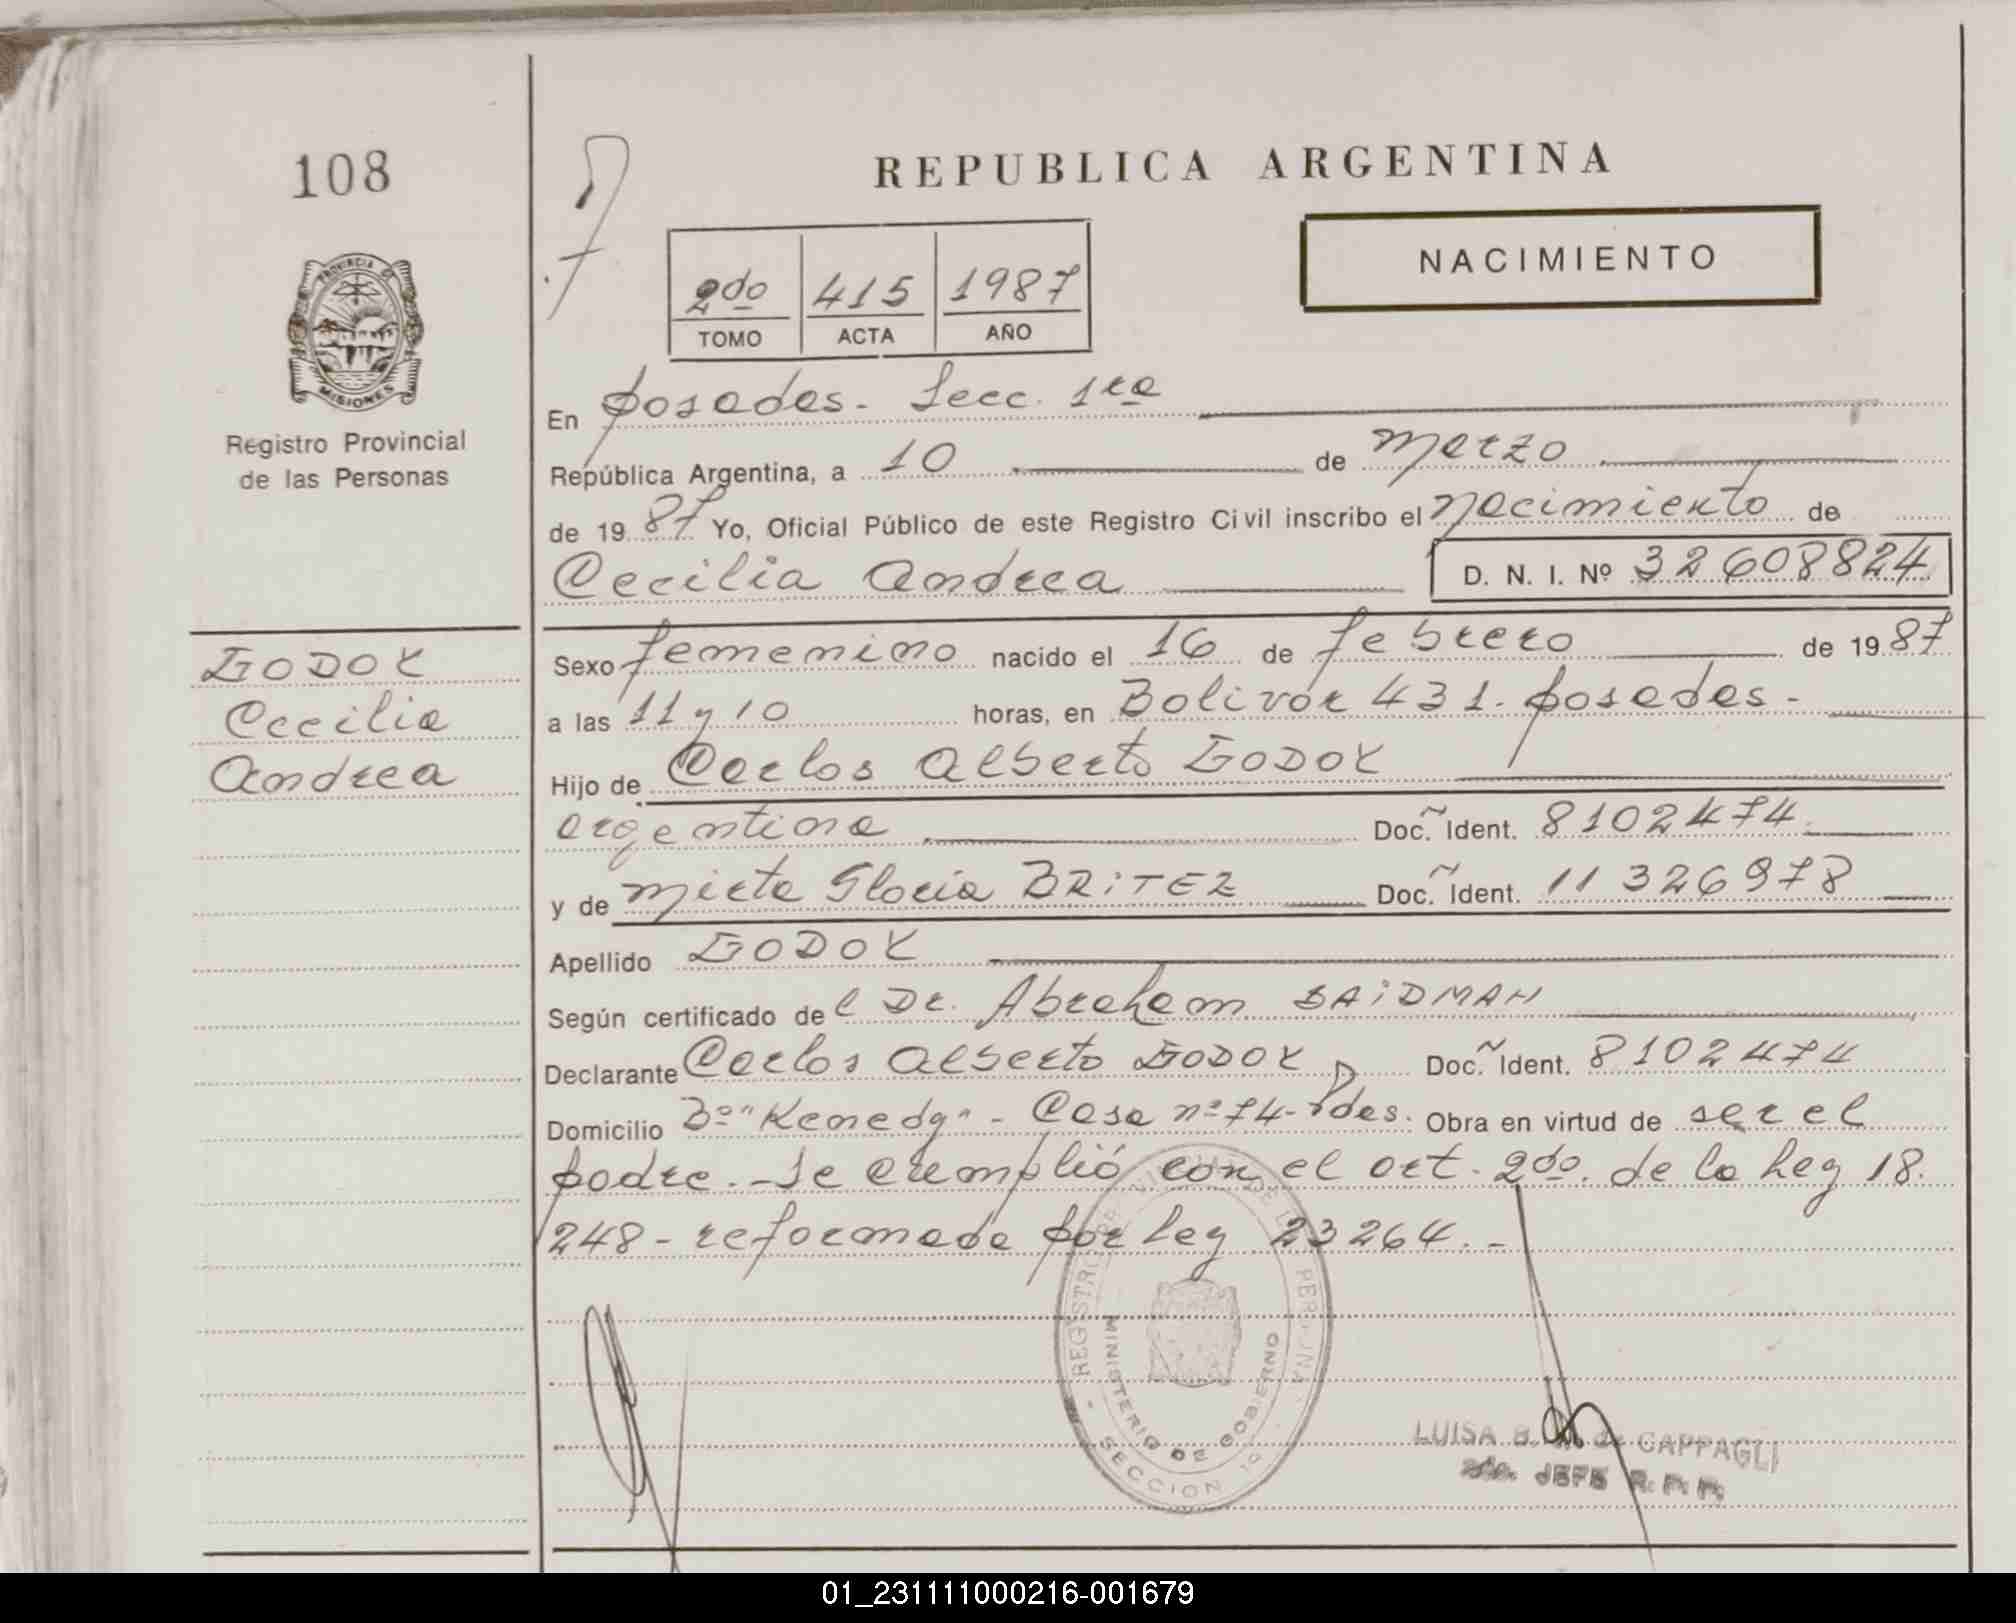 108
REPUBLICA ARGENTINA
NACIMIENTO
2do 415 1987
TOMO ACTA AÑO
PROVINCIA DE
MISIONES
Registro Provincial
de las Personas
En Posadas - Secc. 1ra
República Argentina, a 10 de marzo
de 19 87 Yo, Oficial Público de este Registro Civil inscribo el nacimiento de
Cecilia Andrea D. N. I. Nº 32608824
GODOY
Cecilia
Andrea
Sexo femenino nacido el 16 de febrero de 19 87
a las 11 y 10 horas, en Bolivar 431. Posadas -
Hijo de Carlos Alberto GODOY
argentino Doc. Ident. 8102474
y de Mirta Gloria BRiTEZ Doc. Ident. 11 326978
Apellido GODOY
Según certificado de l Dr. Abraham SAiDMAN
Declarante Carlos Alberto GODOY Doc. Ident. 8102474
Domicilio Bº "Kenedy" - Casa nº 74 - Pdas. Obra en virtud de ser el
padre. - Se cumplió con el art. 2do. de la Ley 18.
248 - reformada por Ley 23264. -
MINISTERIO DE GOBIERNO
SECCION 1ª
LUISA B. de CAPPAGLI
JEFE R. P. P.
01_231111000216-001679